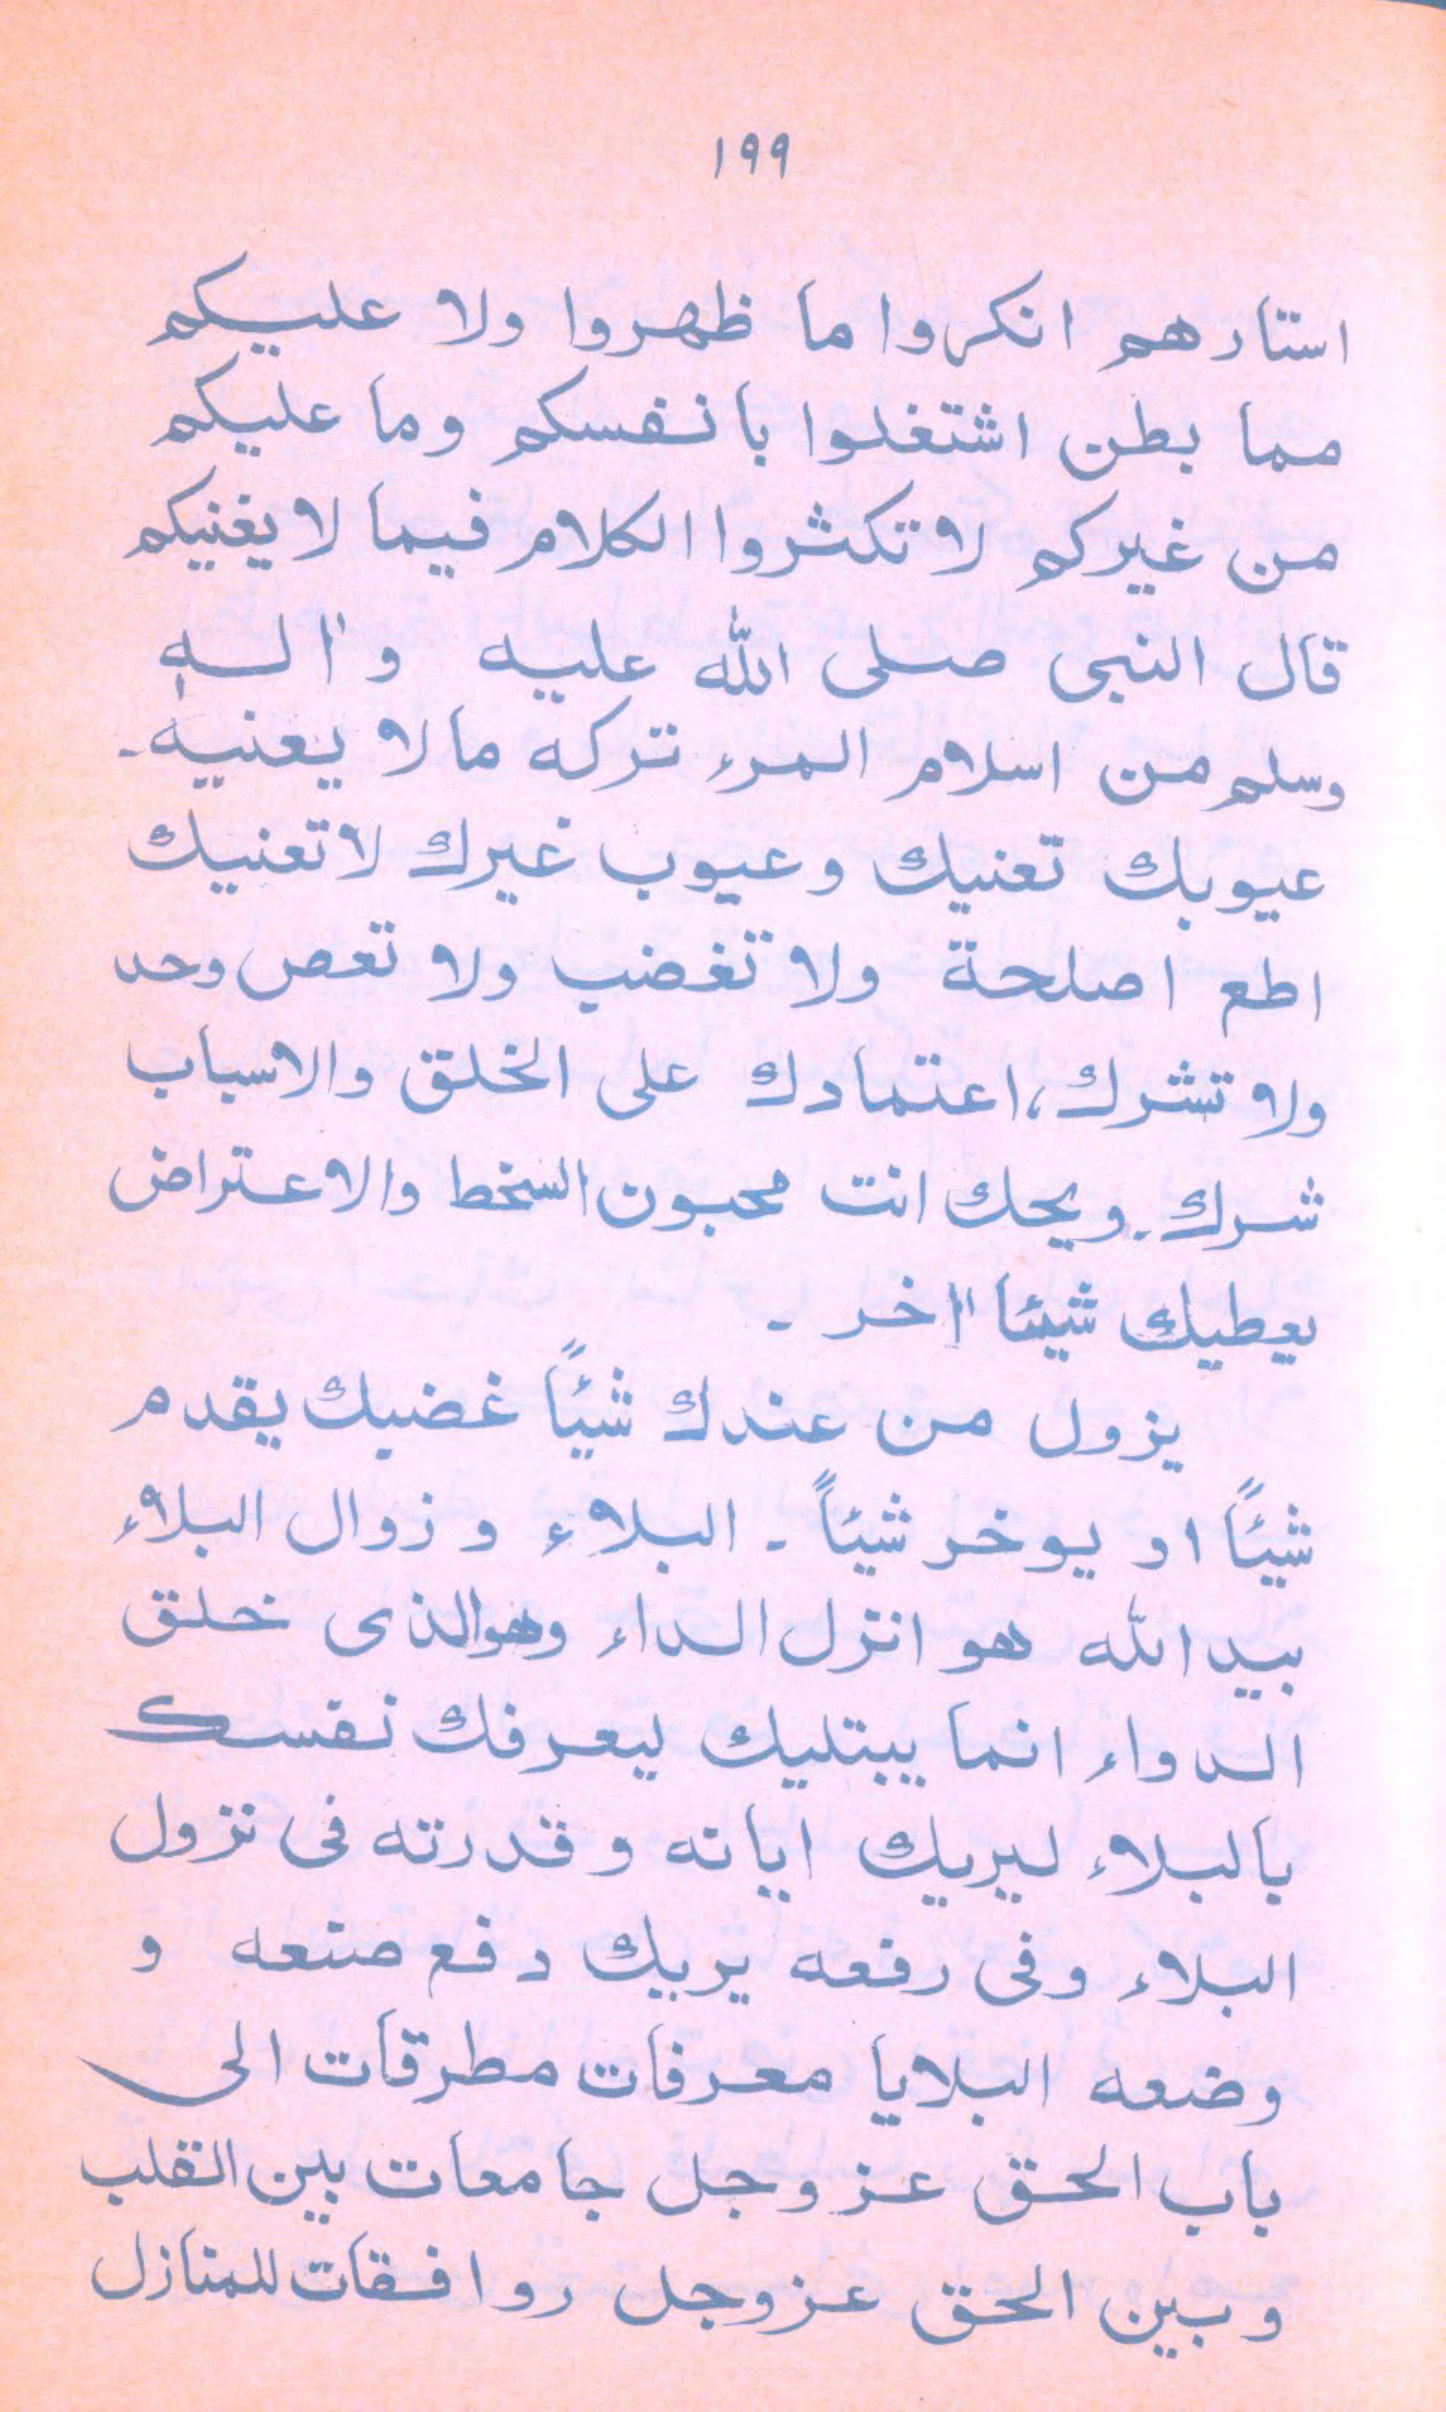 ١٩٩
استارهم انكروا ما ظهروا ولا عليكم
مما بطن اشتغلوا بانفسكم وما عليكم
من غيركم لا تكثروا الكلام فيما لا يغنيكم
قال النبى صلى الله عليه واٰلهٖ
وسلم من اسلام المرء تركه ما لا يعنيه۔
عيوبك تعنيك وعيوب غيرك لا تعنيك
اطع اصلحة ولا تغضب ولا تعص وحد
ولا تشرك، اعتمادك على الخلق والاسباب
شرك۔ ويحك انت محبون السخط والاعتراض
يعطيك شيئا اٰخر ۔
يزول من عندك شئًا غضبك يقدم
شئًا او يوخر شئًا ۔ البلاء وزوال البلاء
بيد الله هو انزل الداء وهو الذى خلق
الدواء انما يبتليك ليعرفك نفسك
بالبلاء ليريك اياته وقدرته فى نزول
البلاء وفى رفعه يريك دفع صنعه و
وضعه البلايا معرفات مطرقات الى
باب الحق عز وجل جامعات بين القلب
وبين الحق عز وجل روافقات للمنازل